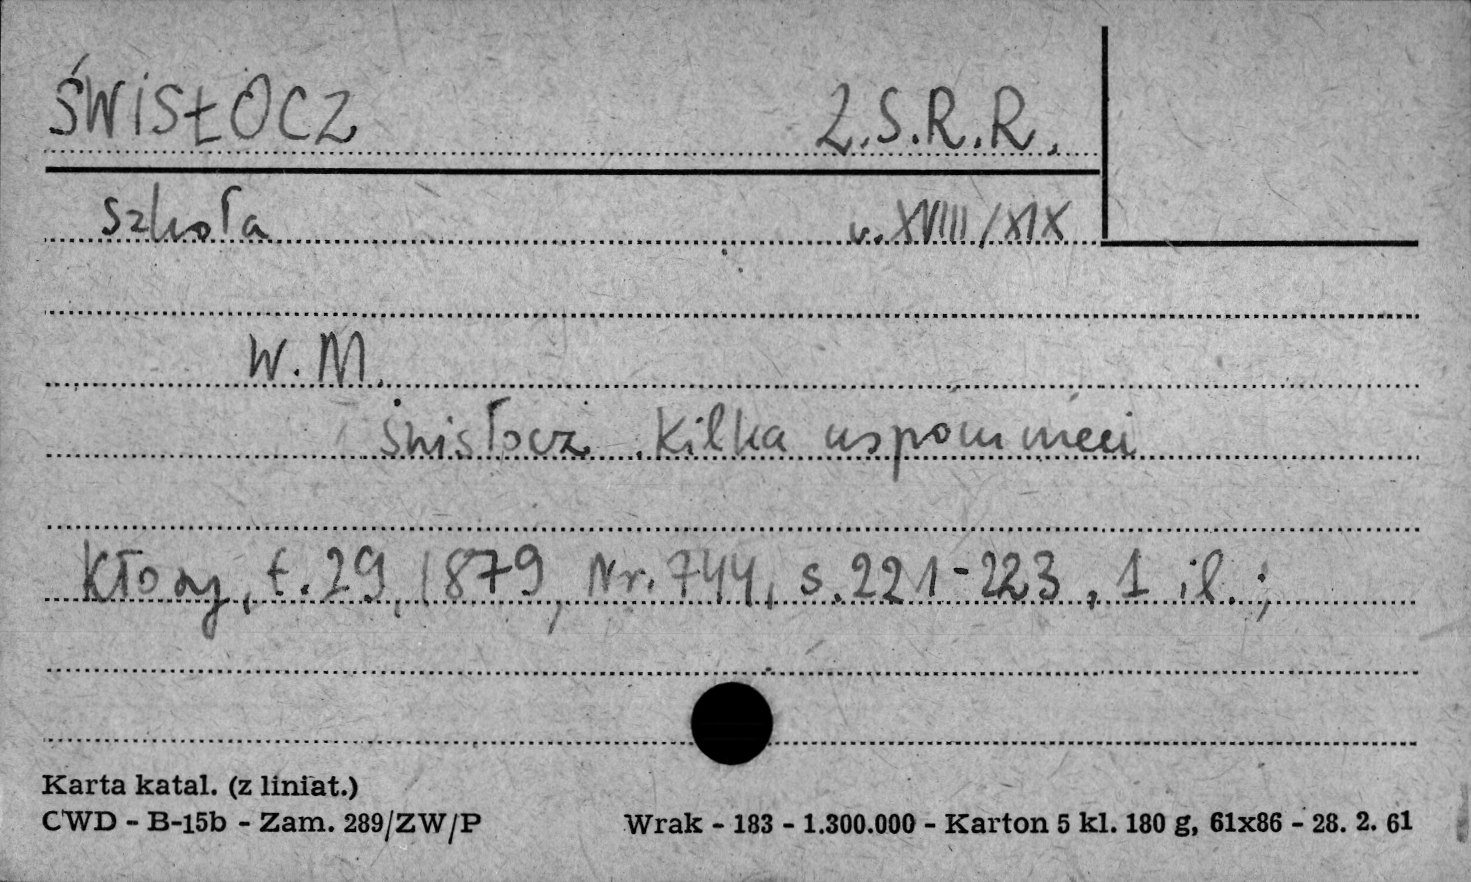 ŚWISŁOCZ Z.S.R.R.
szkoła w. XVIII/XIX
W. M.
Świsłocz. Kilka wspomnień
Kłosy, t. 29, 1879, Nr. 744, s. 221-223, 1 il.;
Karta katal. (z liniat.)
CWD - B-15b - Zam. 289/ZW/P Wrak - 183 - 1.300.000 - Karton 5 kl. 180 g, 61x86 - 28. 2. 61